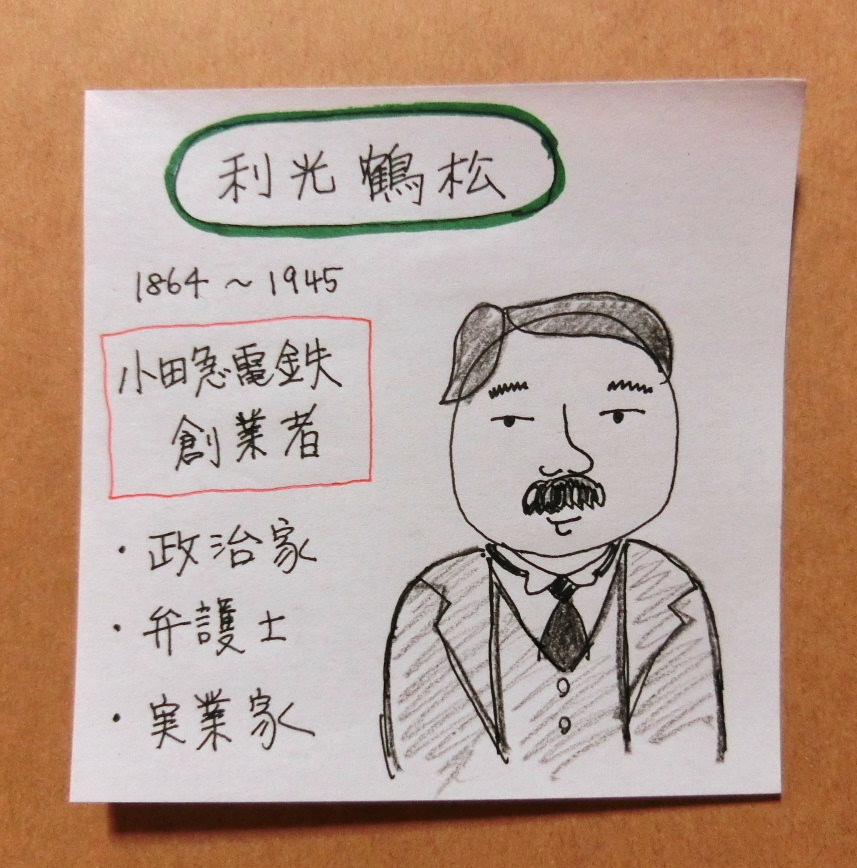 利光鶴松
1864～1945
小田急電鉄
創業者
・政治家
・弁護士
・実業家